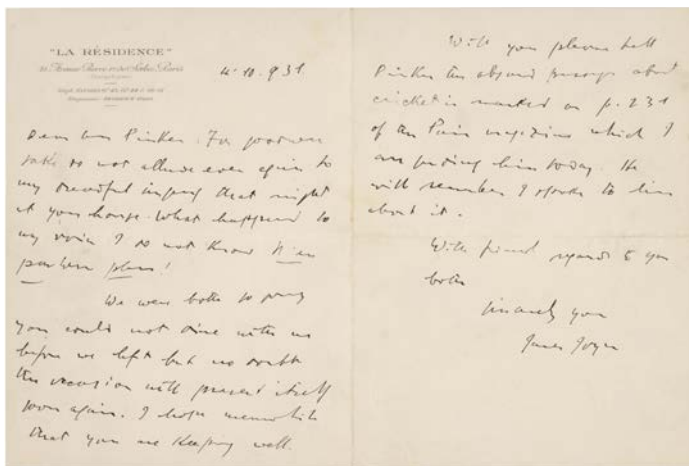 "LA RÉSIDENCE"
Paris
4.10.931
Dear Mrs Pinker. For goodness
sake do not allude even again to
my dreadful singing that night
at your house. What happened to
my voice I do not know. N'en
parlons plus!
We were both so sorry
you could not dine with us
before we left but no doubt
the occasion will present itself
soon again. I hope meanwhile
that you are keeping well.
Will you please tell
Pinker the absurd passage about
cricket is marked on p. 231
of the Paris magazine which I
am sending him today. He
will remember I spoke to him
about it.
With friendly regards to you
both
sincerely yours
James Joyce